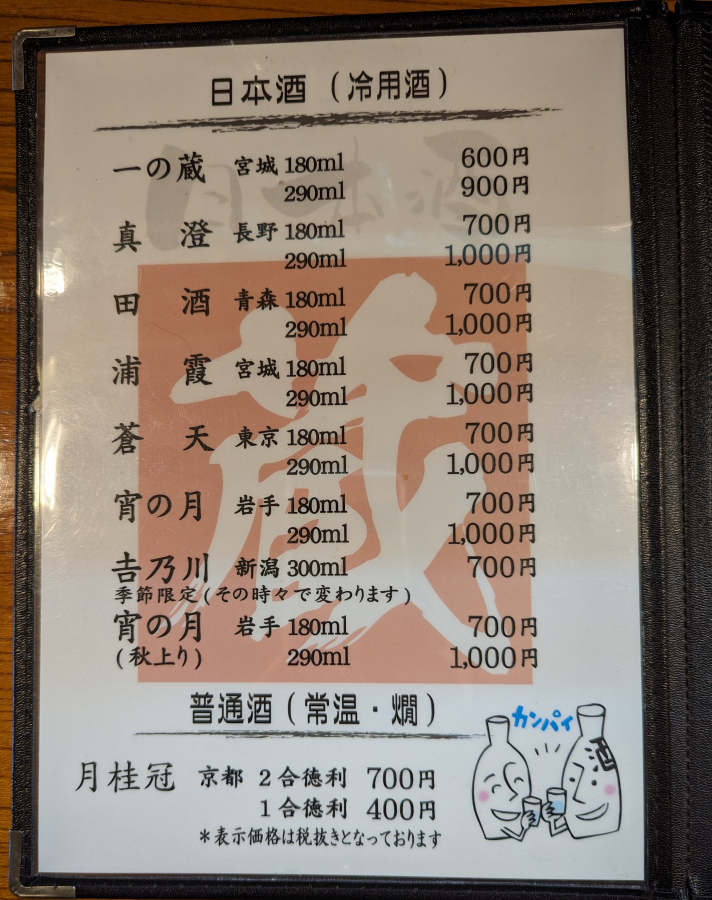 日本酒（冷用酒）
一の蔵 宮城 180ml 600円
290ml 900円
真 澄 長野 180ml 700円
290ml 1,000円
田 酒 青森 180ml 700円
290ml 1,000円
浦 霞 宮城 180ml 700円
290ml 1,000円
蒼 天 東京 180ml 700円
290ml 1,000円
宵の月 岩手 180ml 700円
290ml 1,000円
𠮷乃川 新潟 300ml 700円
季節限定(その時々で変わります)
宵の月 岩手 180ml 700円
(秋上り) 290ml 1,000円
蔵
普通酒（常温・燗）
カンパイ
酒
月桂冠 京都 2合徳利 700円
1合徳利 400円
＊表示価格は税抜きとなっております